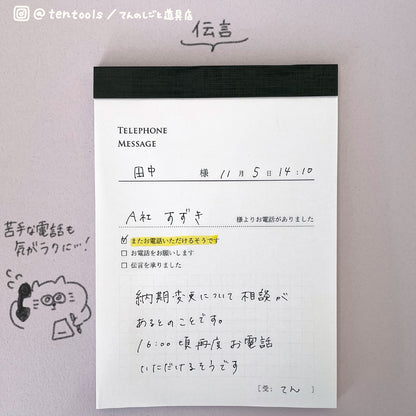 @tentools/てんのしごと道具店
伝言
TELEPHONE
MESSAGE
田中 様 11月5日14:10
A社 すずき 様よりお電話がありました
☑ またお電話いただけるそうです
☐ お電話をお願いします
☐ 伝言を承りました
納期変更について相談が
あるとのことです。
16:00頃再度お電話
いただけるそうです
[受: てん ]
苦手な電話も
気がラクに…!